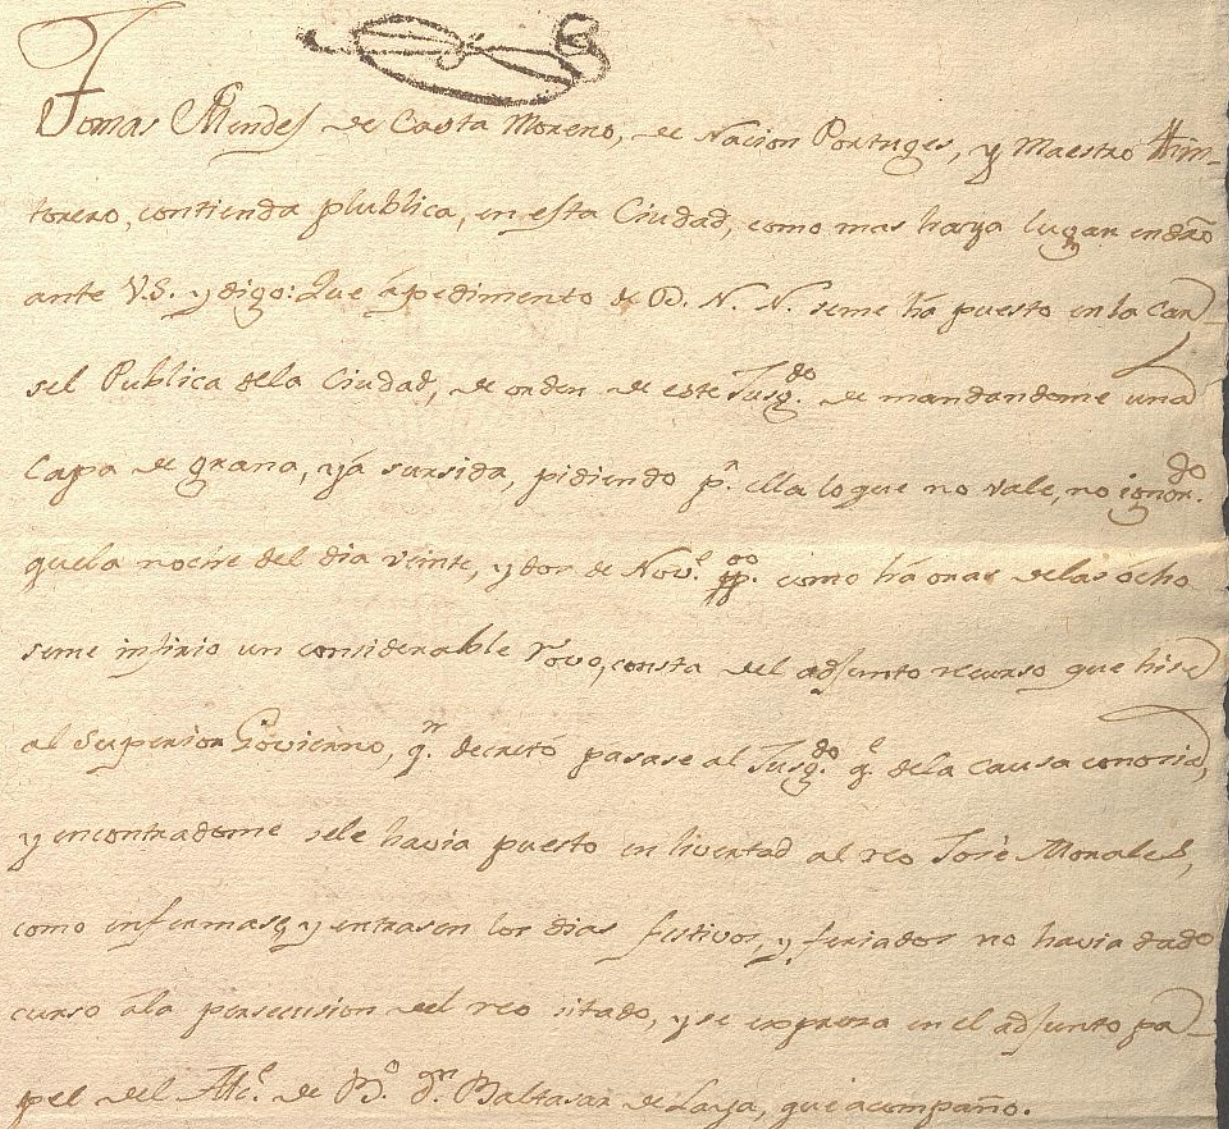 Tomas Mendes de Casta Moreno, de Nacion Portuges, y Maestro tin-
torero, contienda plublica, en esta Ciudad, como mas haya lugar en dro
ante V.S. y digo: Que á pedimento de D. N. N. seme há puesto en la Car-
sel Publica dela Ciudad, de orden de este Jusg.do de mandandome una
Capa de grana, yá sursida, pidiendo p.r ella lo que no vale, no ignor.do
quela noche del dia veinte, y dos de Nov.e pp.oo como há oras delas ócho
seme infirio un considerable rovo, consta del adjunto recurso que hise
al Superior Govierno, q.n decretó pasase al Jusg.do q.e dela causa conosia,
y encontradome sele havia puesto en livertad al reo José Morales,
como enfermase, y entrasen los dias festivos, y feriados no havia dado
curso ála persecusion del reo sitado, y se expresa en el adjunto pa-
pel del Alc.e de B.o d.n Baltasar de Laya, que acompaño.